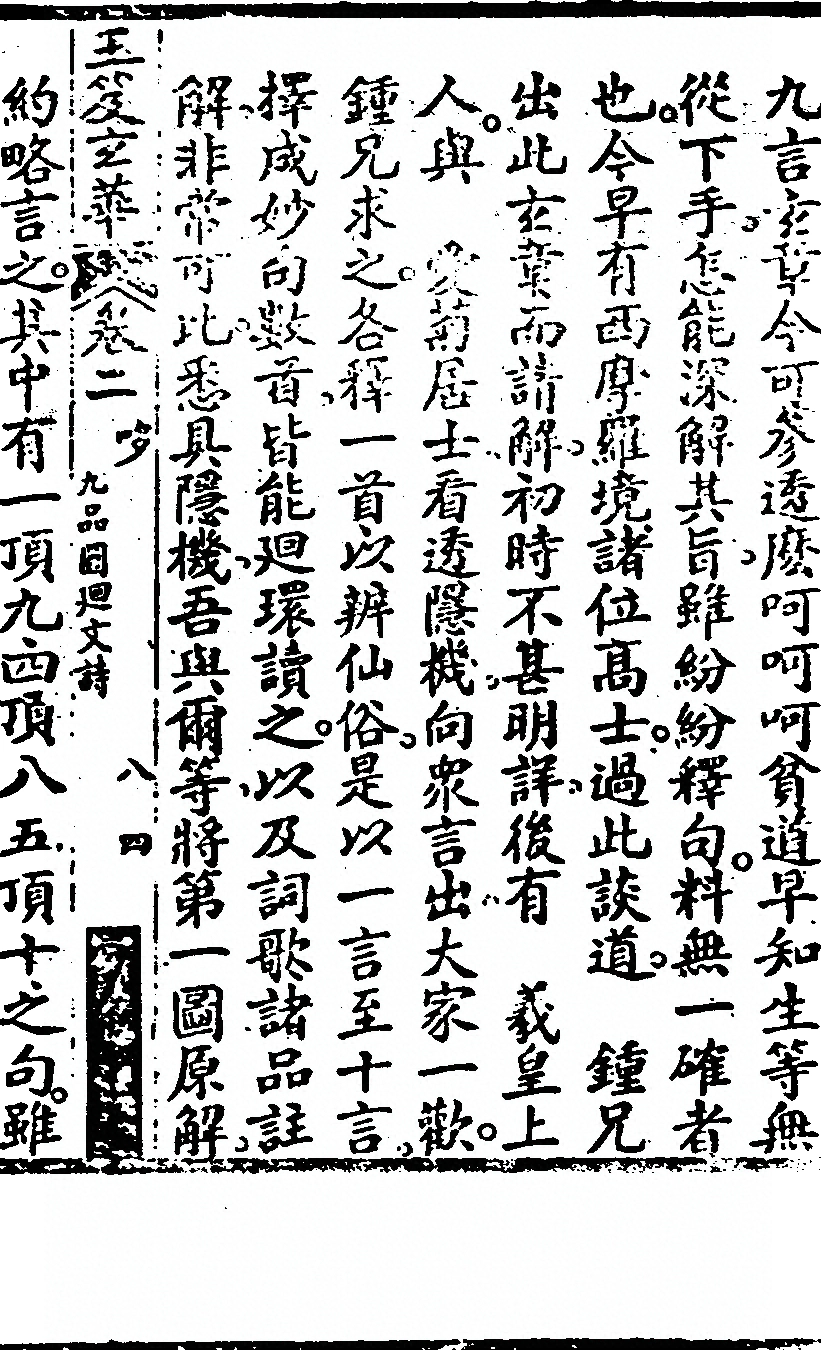 九言玄章今可參透麼呵呵呵貧道早知生等無
從下手怎能深解其旨雖紛紛釋句料無一確者
也今早有西摩羅境諸位高士過此談道　鍾兄
出此玄章而請解初時不甚明詳後有　羲皇上
人與　愛菊居士看透隱機向衆言出大家一歡
鍾兄求之各釋一首以辨仙俗是以一言至十言
擇成妙句數首皆能廻環讀之以及詞歌諸品註
解非常可比悉具隱機吾與爾等將第一圖原解
玉笈玄華 卷二 吵 九品囙廻文詩 八 四
約略言之其中有一頂九四頂八五頂十之句雖